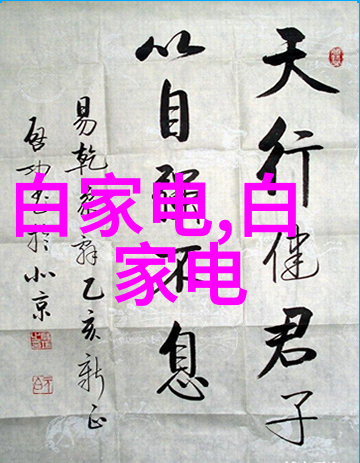 天行健君子
以自强不息
易乾辞乙亥新正
启功于北京
白家电,白
家电